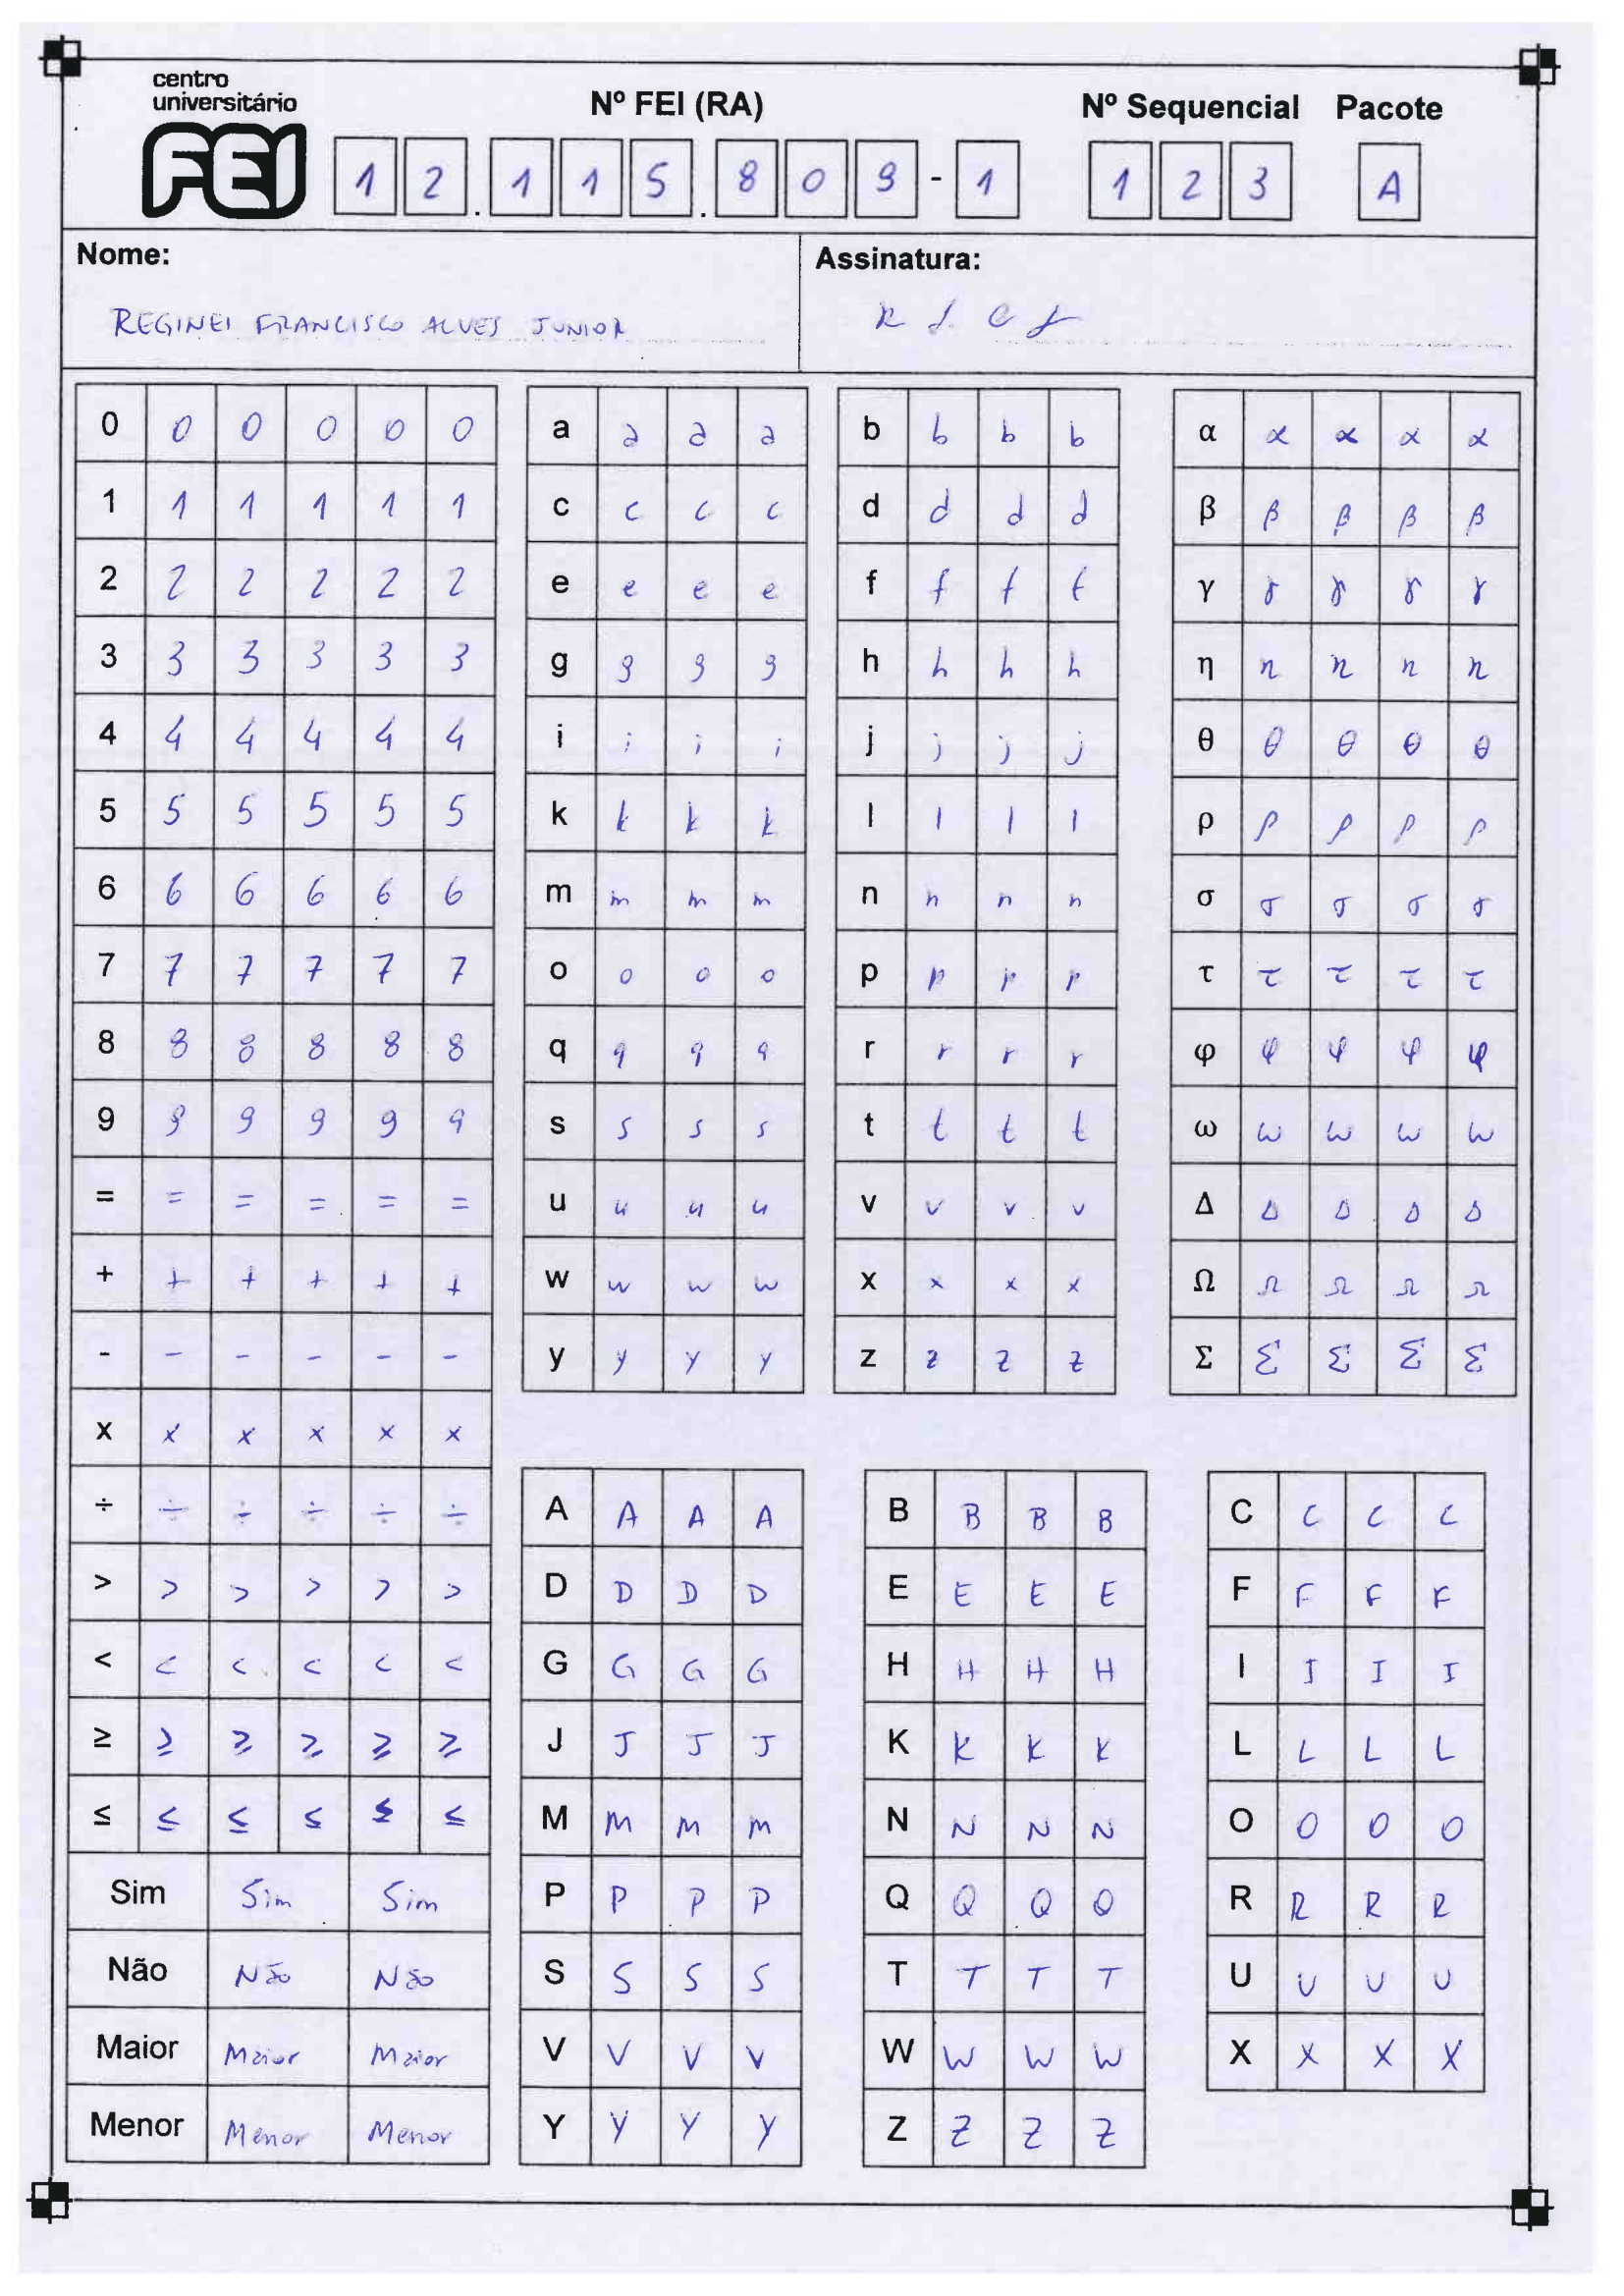 centro
universitário
FEI
Nº FEI (RA)
Nº Sequencial Pacote
1 2 . 1 1 5 . 8 0 9 - 1
1 2 3
A
Nome:
REGINEI FRANCISCO ALVES JUNIOR
Assinatura:
0 0 0 0 0 0
1 1 1 1 1 1
2 2 2 2 2 2
3 3 3 3 3 3
4 4 4 4 4 4
5 5 5 5 5 5
6 6 6 6 6 6
7 7 7 7 7 7
8 8 8 8 8 8
9 9 9 9 9 9
= = = = = =
+ + + + + +
- - - - - -
x x x x x x
÷ ÷ ÷ ÷ ÷ ÷
> > > > > >
< < < < < <
≥ ≥ ≥ ≥ ≥ ≥
≤ ≤ ≤ ≤ ≤ ≤
Sim Sim Sim
Não Não Não
Maior Maior Maior
Menor Menor Menor
a a a a
c c c c
e e e e
g g g g
i i i i
k k k k
m m m m
o o o o
q q q q
s s s s
u u u u
w w w w
y y y y
b b b b
d d d d
f f f f
h h h h
j j j j
l l l l
n n n n
p p p p
r r r r
t t t t
v v v v
x x x x
z z z z
α α α α α
β β β β β
γ γ γ γ γ
η η η η η
θ θ θ θ θ
ρ ρ ρ ρ ρ
σ σ σ σ σ
τ τ τ τ τ
φ φ φ φ φ
ω ω ω ω ω
Δ Δ Δ Δ Δ
Ω Ω Ω Ω Ω
Σ Σ Σ Σ Σ
A A A A
D D D D
G G G G
J J J J
M M M M
P P P P
S S S S
V V V V
Y Y Y Y
B B B B
E E E E
H H H H
K K K K
N N N N
Q Q Q Q
T T T T
W W W W
Z Z Z Z
C C C C
F F F F
I I I I
L L L L
O O O O
R R R R
U U U U
X X X X